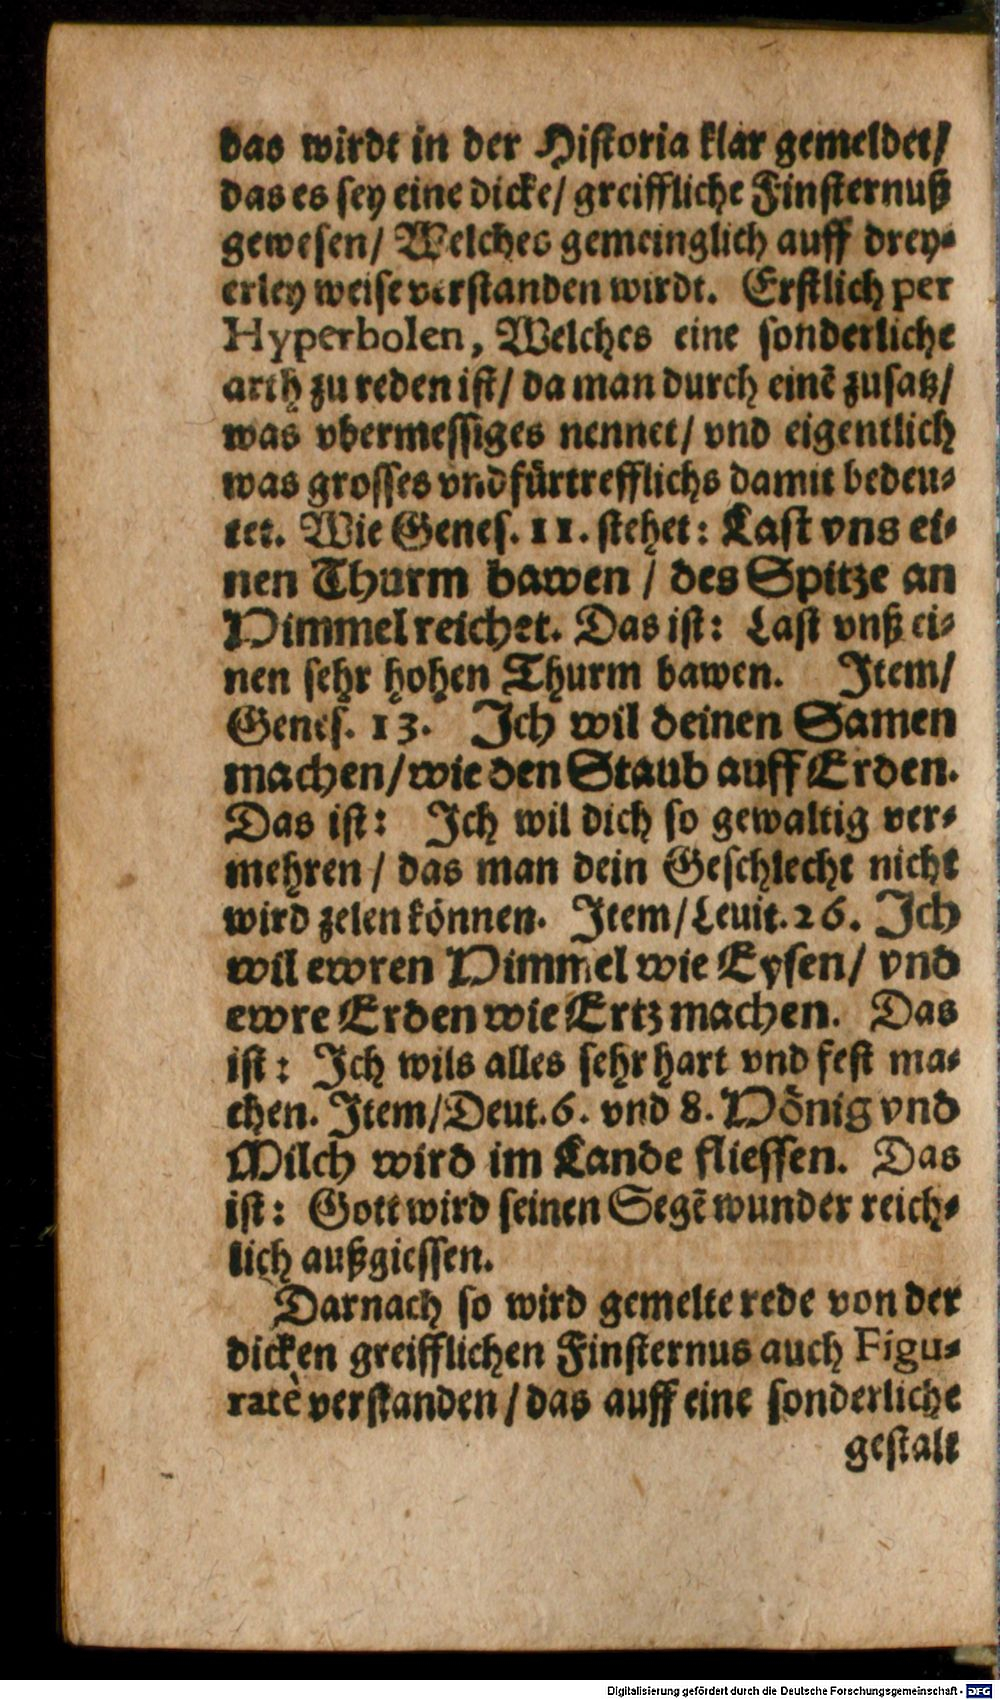 das wirdt in der Historia klar gemeldet/
das es sey eine dicke/ greiffliche Finsternuß
gewesen/ Welches gemeinglich auff drey-
erley weise verstanden wirdt. Erstlich per
Hyperbolen, Welches eine sonderliche
arth zu reden ist/ da man durch einē zusatz/
was vbermessiges nennet/ vnd eigentlich
was grosses vnd fürtrefflichs damit bedeu-
tet. Wie Genes. 11. stehet: Last vns ei-
nen Thurm bawen / des Spitze an
Himmel reichet. Das ist: Last vnß ei-
nen sehr hohen Thurm bawen. Item/
Genes. 13. Ich wil deinen Samen
machen/ wie den Staub auff Erden.
Das ist: Ich wil dich so gewaltig ver-
mehren / das man dein Geschlecht nicht
wird zelen können. Item/ Leuit. 26. Ich
wil ewren Himmel wie Eysen/ vnd
ewre Erden wie Ertz machen. Das
ist: Ich wils alles sehr hart vnd fest ma-
chen. Item/ Deut. 6. vnd 8. Hönig vnd
Milch wird im Lande fliessen. Das
ist: Gott wird seinen Segē wunder reich-
lich außgiessen.
Darnach so wird gemelte rede von der
dicken greifflichen Finsternus auch Figu-
ratè verstanden / das auff eine sonderliche
gestalt
Digitalisierung gefördert durch die Deutsche Forschungsgemeinschaft - DFG